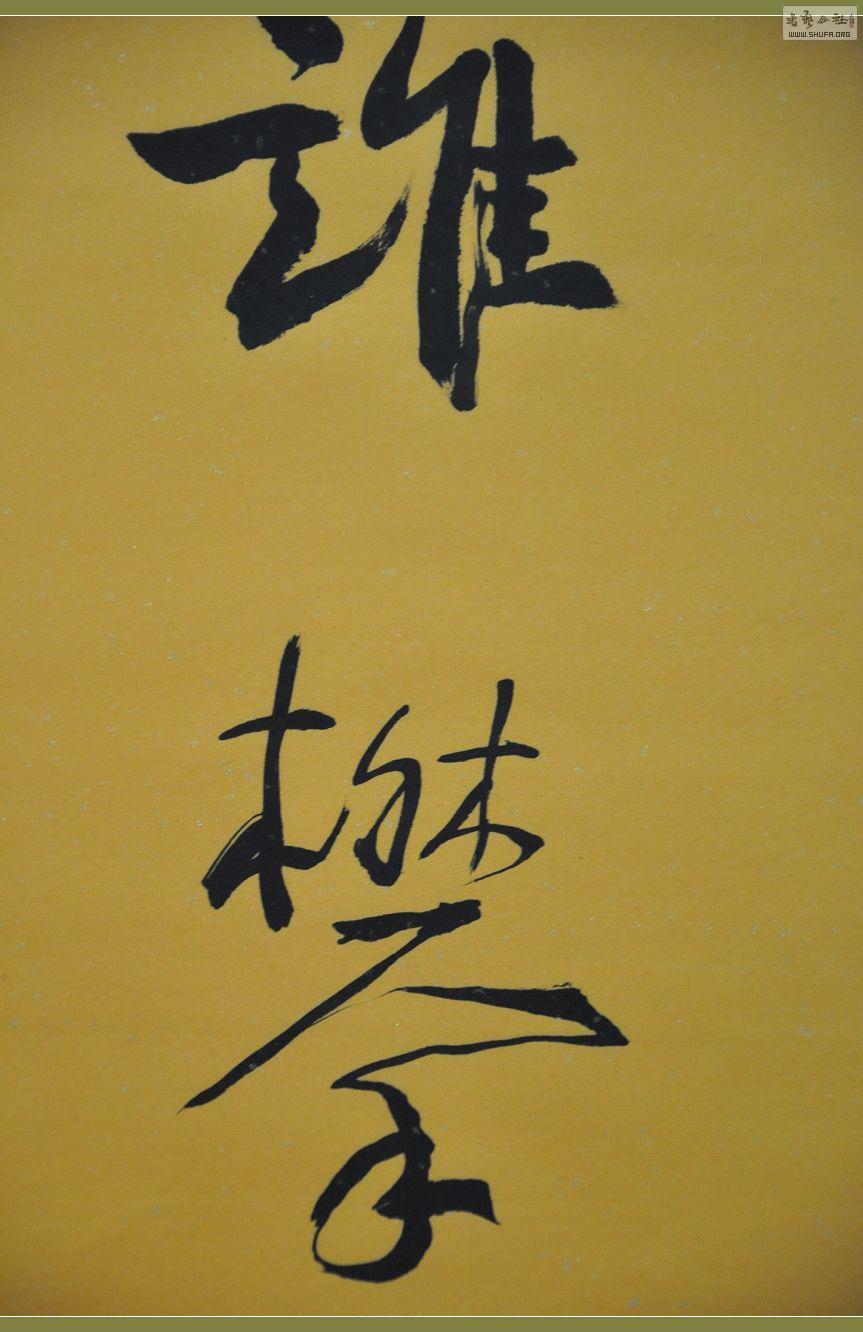 誰
攀
書藝公社
WWW.SHUFA.ORG